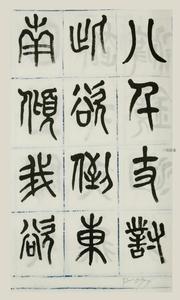 八千丈對
此欲倒東
南傾我欲